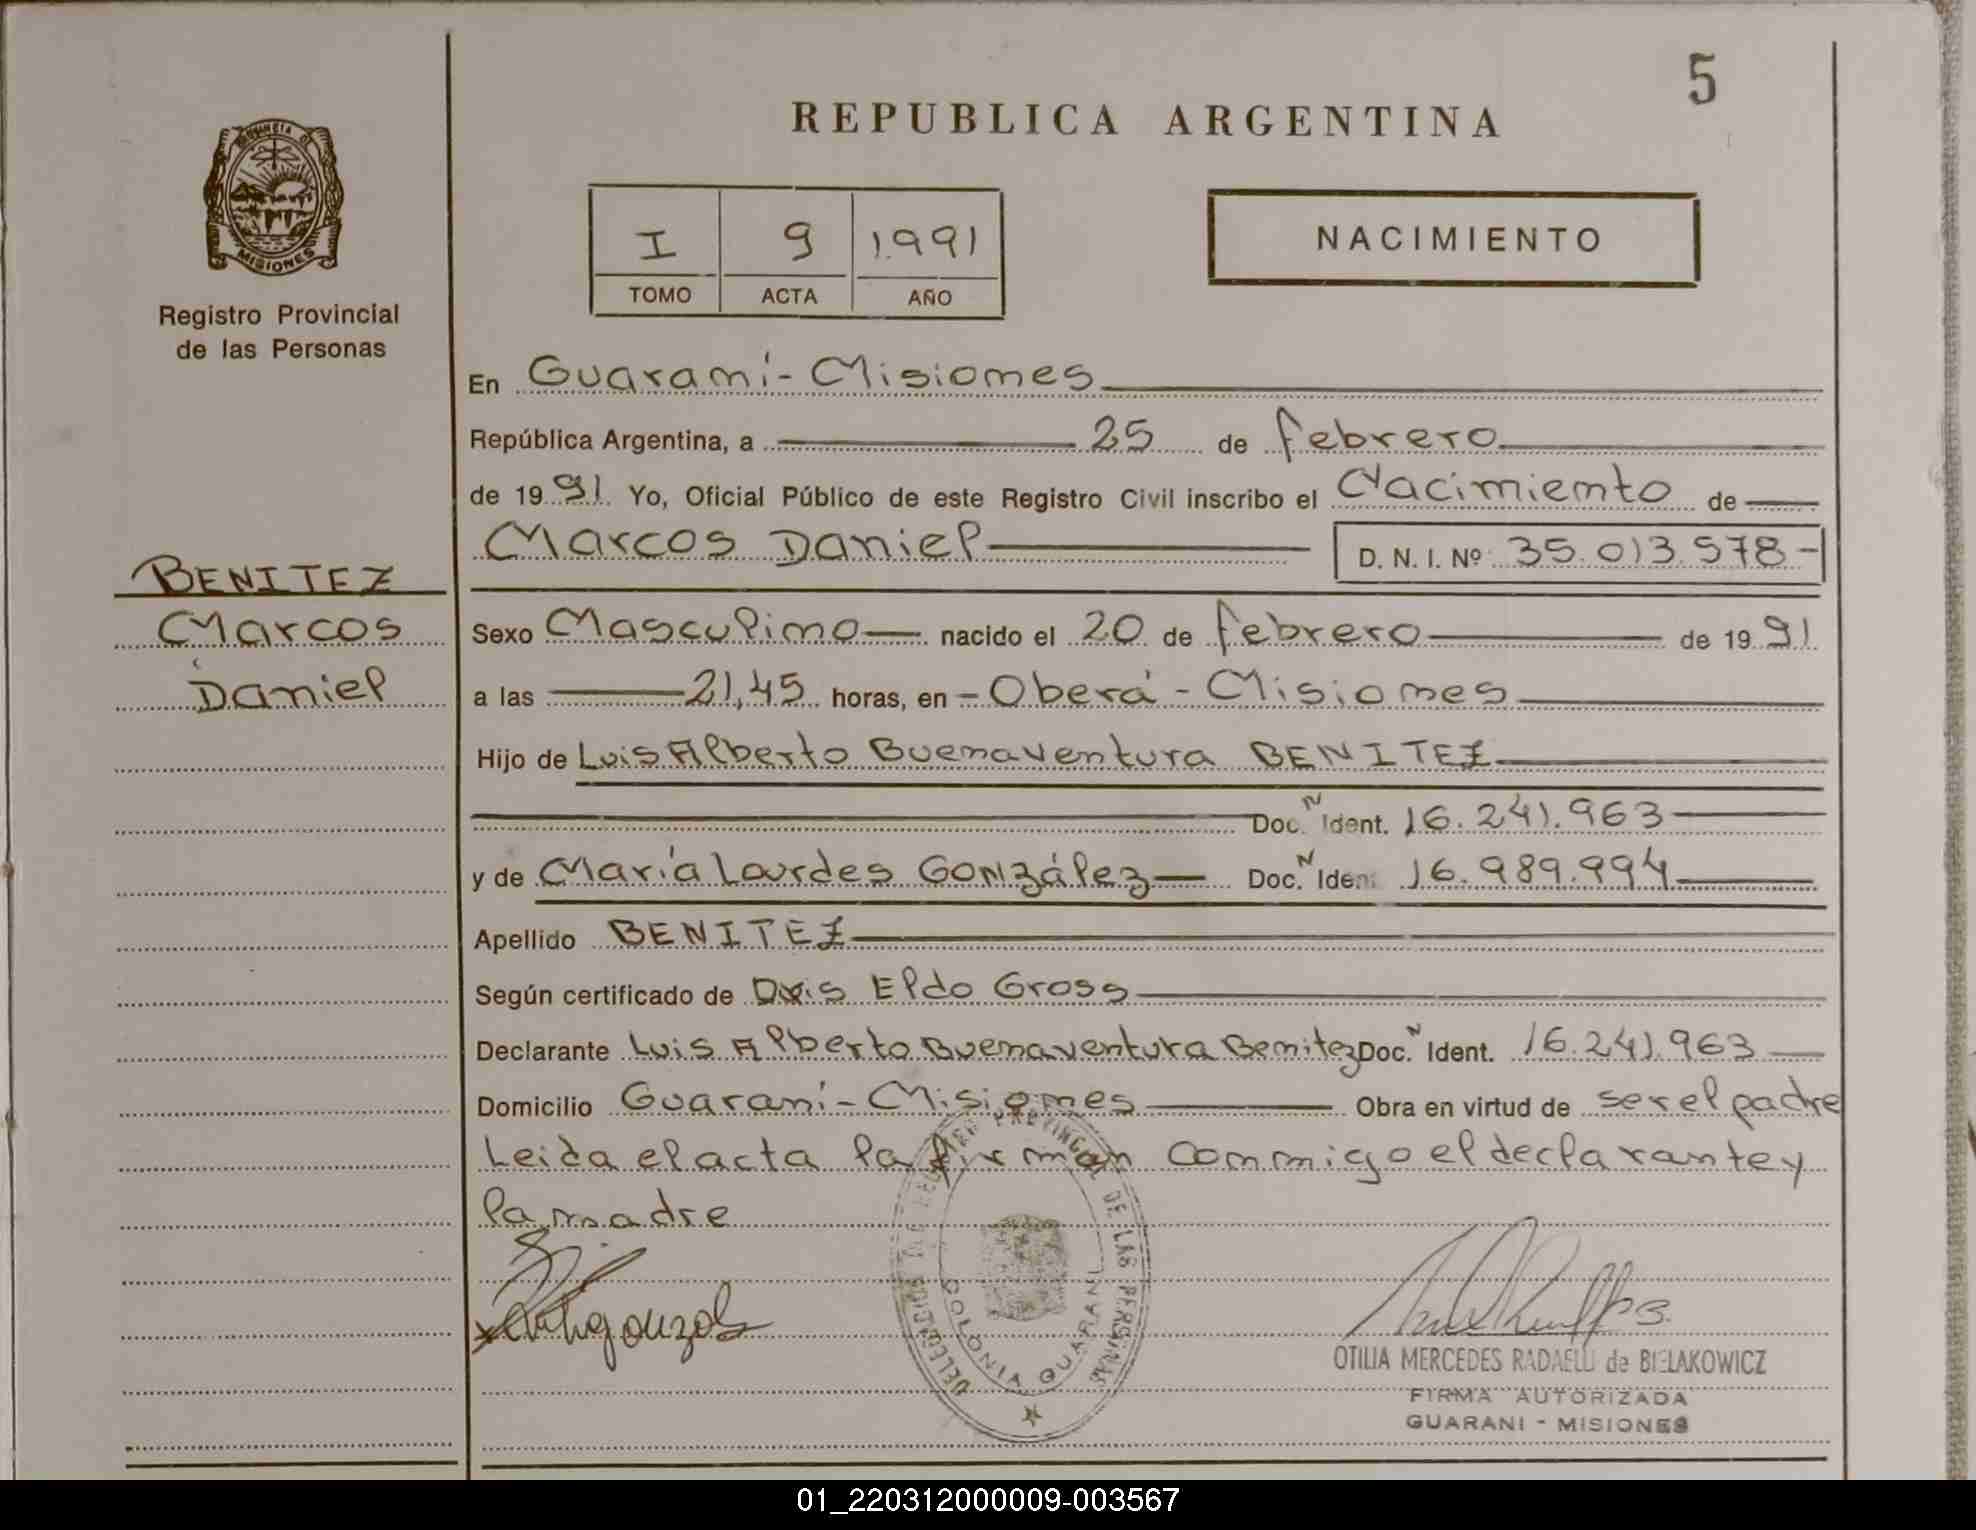 5
REPUBLICA ARGENTINA
PROVINCIA DE
MISIONES
Registro Provincial
de las Personas
I 9 1.991
TOMO ACTA AÑO
NACIMIENTO
En Guaraní - Misiones
República Argentina, a 25 de febrero
de 1991 Yo, Oficial Público de este Registro Civil inscribo el Nacimiento de
Marcos Daniel D. N. I. Nº 35.013.578-
BENITEZ
Marcos
Daniel
Sexo Masculino nacido el 20 de febrero de 1991
a las 21,45 horas, en - Oberá - Misiones
Hijo de Luis Alberto Buenaventura BENITEZ
Doc. N Ident. 16.241.963
y de María Lourdes González Doc. N Ident. 16.989.994
Apellido BENITEZ
Según certificado de Eldo Gross
Declarante Luis Alberto Buenaventura Benitez Doc. N Ident. 16.241.963
Domicilio Guaraní - Misiones Obra en virtud de ser el padre
Leida el acta la firman conmigo el declarante y
la madre
DELEGACION DEL REGISTRO PROVINCIAL DE LAS PERSONAS
COLONIA GUARANI
OTILIA MERCEDES RADAELLI de BIELAKOWICZ
FIRMA AUTORIZADA
GUARANI - MISIONES
01_220312000009-003567